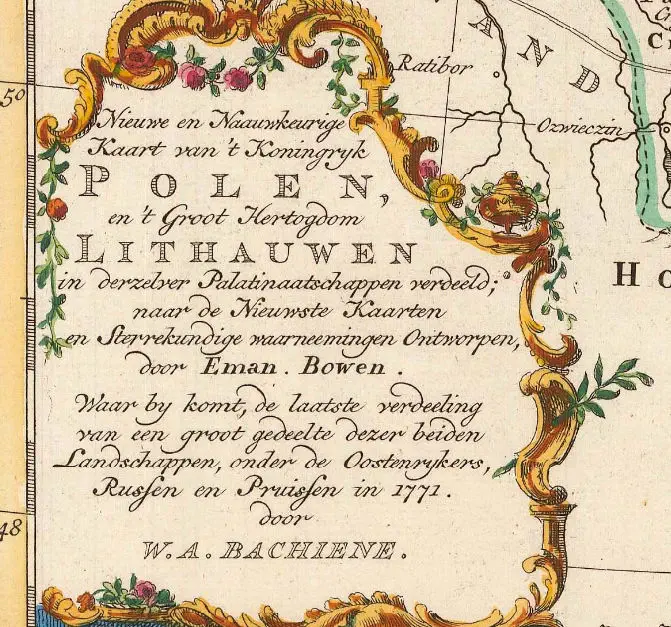 50
48
Nieuwe en Naauwkeurige
Kaart van 't Koningryk
POLEN,
en 't Groot Hertogdom
LITHAUWEN
in derzelver Palatinaatschappen verdeeld;
naar de Nieuwste Kaarten
en Sterrekundige waarneemingen Ontworpen,
door Eman. Bowen.
Waar by komt, de laatste verdeeling
van een groot gedeelte dezer beiden
Landschappen, onder de Oostenrykers,
Russen en Pruissen in 1771.
door
W. A. BACHIENE.
AND
Ratibor
Ozwieczin
C
HO